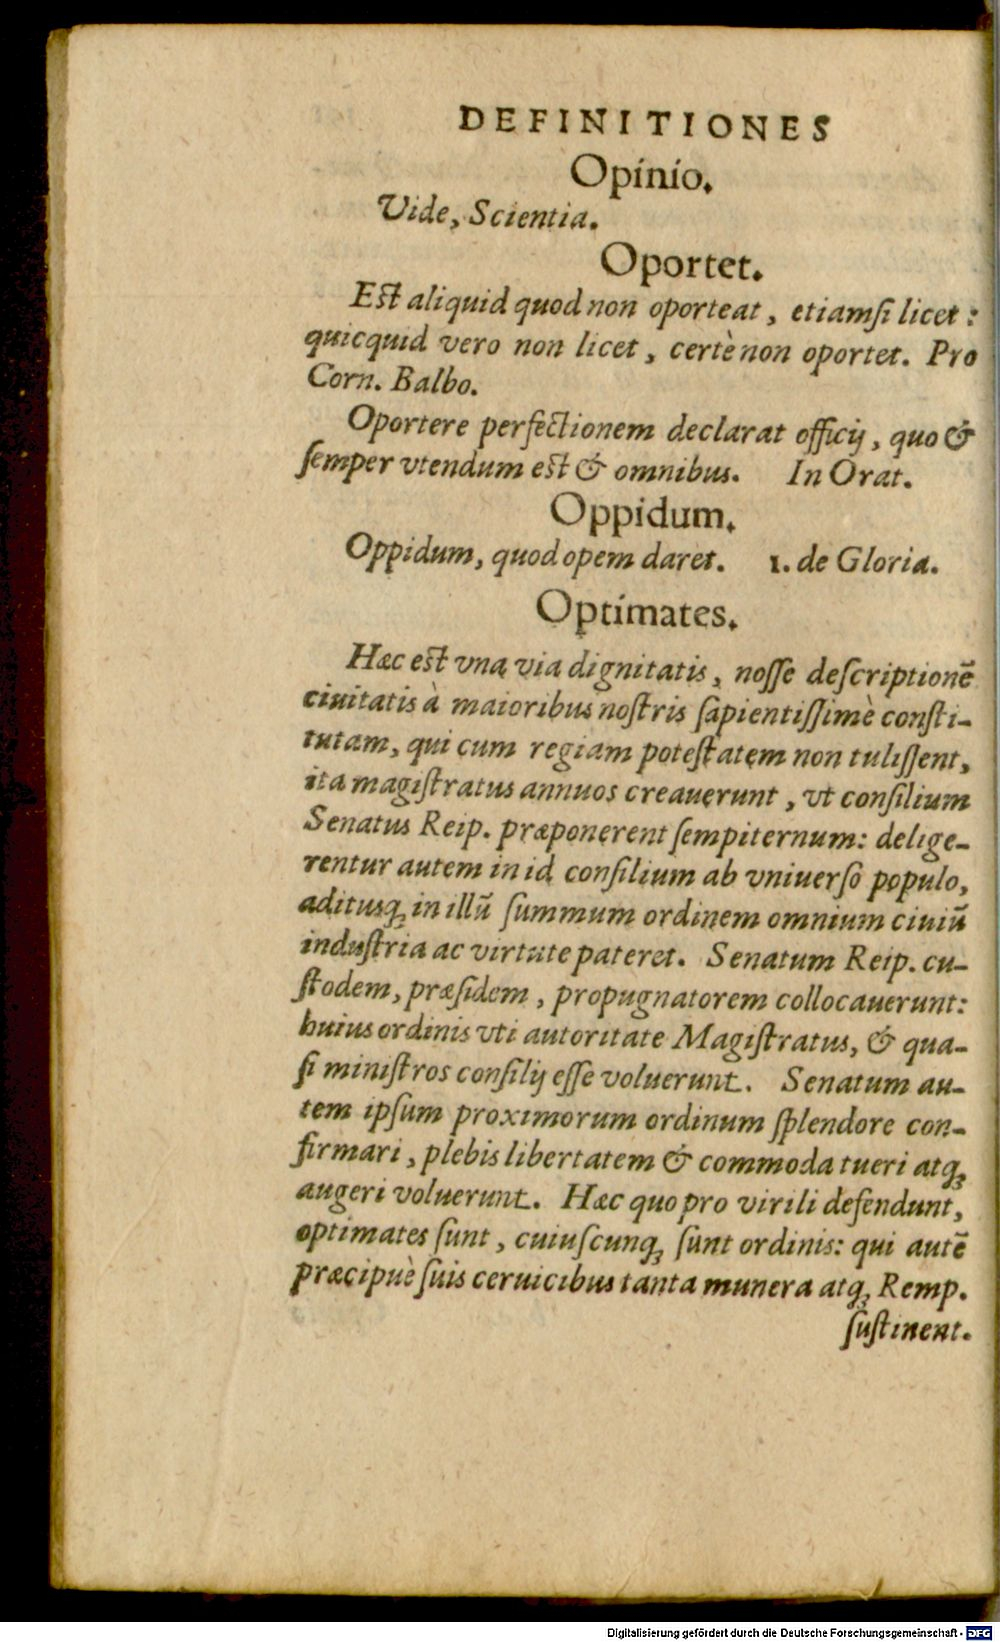 DEFINITIONES
Opinio.
Vide, Scientia.
Oportet.
Est aliquid quod non oporteat, etiamſi licet:
quicquid vero non licet, certè non oportet. Pro
Corn. Balbo.
Oportere perfectionem declarat officij, quo &
ſemper vtendum est & omnibus. In Orat.
Oppidum.
Oppidum, quod opem daret. 1. de Gloria.
Optimates.
Hæc est vna via dignitatis, noſſe deſcriptionē
ciuitatis à maioribus noſtris ſapientiſſimè conſti-
tutam, qui cum regiam poteſtatem non tuliſſent,
ita magiſtratus annuos creauerunt, vt conſilium
Senatus Reip. præponerent ſempiternum: delige-
rentur autem in id conſilium ab vniuerſo populo,
aditusq; in illū ſummum ordinem omnium ciuiū
induſtria ac virtute pateret. Senatum Reip. cu-
ſtodem, præſidem, propugnatorem collocauerunt:
huius ordinis vti autoritate Magiſtratus, & qua-
ſi miniſtros conſilij eſſe voluerunt. Senatum au-
tem ipſum proximorum ordinum ſplendore con-
firmari, plebis libertatem & commoda tueri atq;
augeri voluerunt. Hæc quo pro virili defendunt,
optimates ſunt, cuiuſcunq; ſunt ordinis: qui autē
præcipuè ſuis ceruicibus tanta munera atq; Remp.
ſuſtinent.
Digitalisierung gefördert durch die Deutsche Forschungsgemeinschaft - DFG